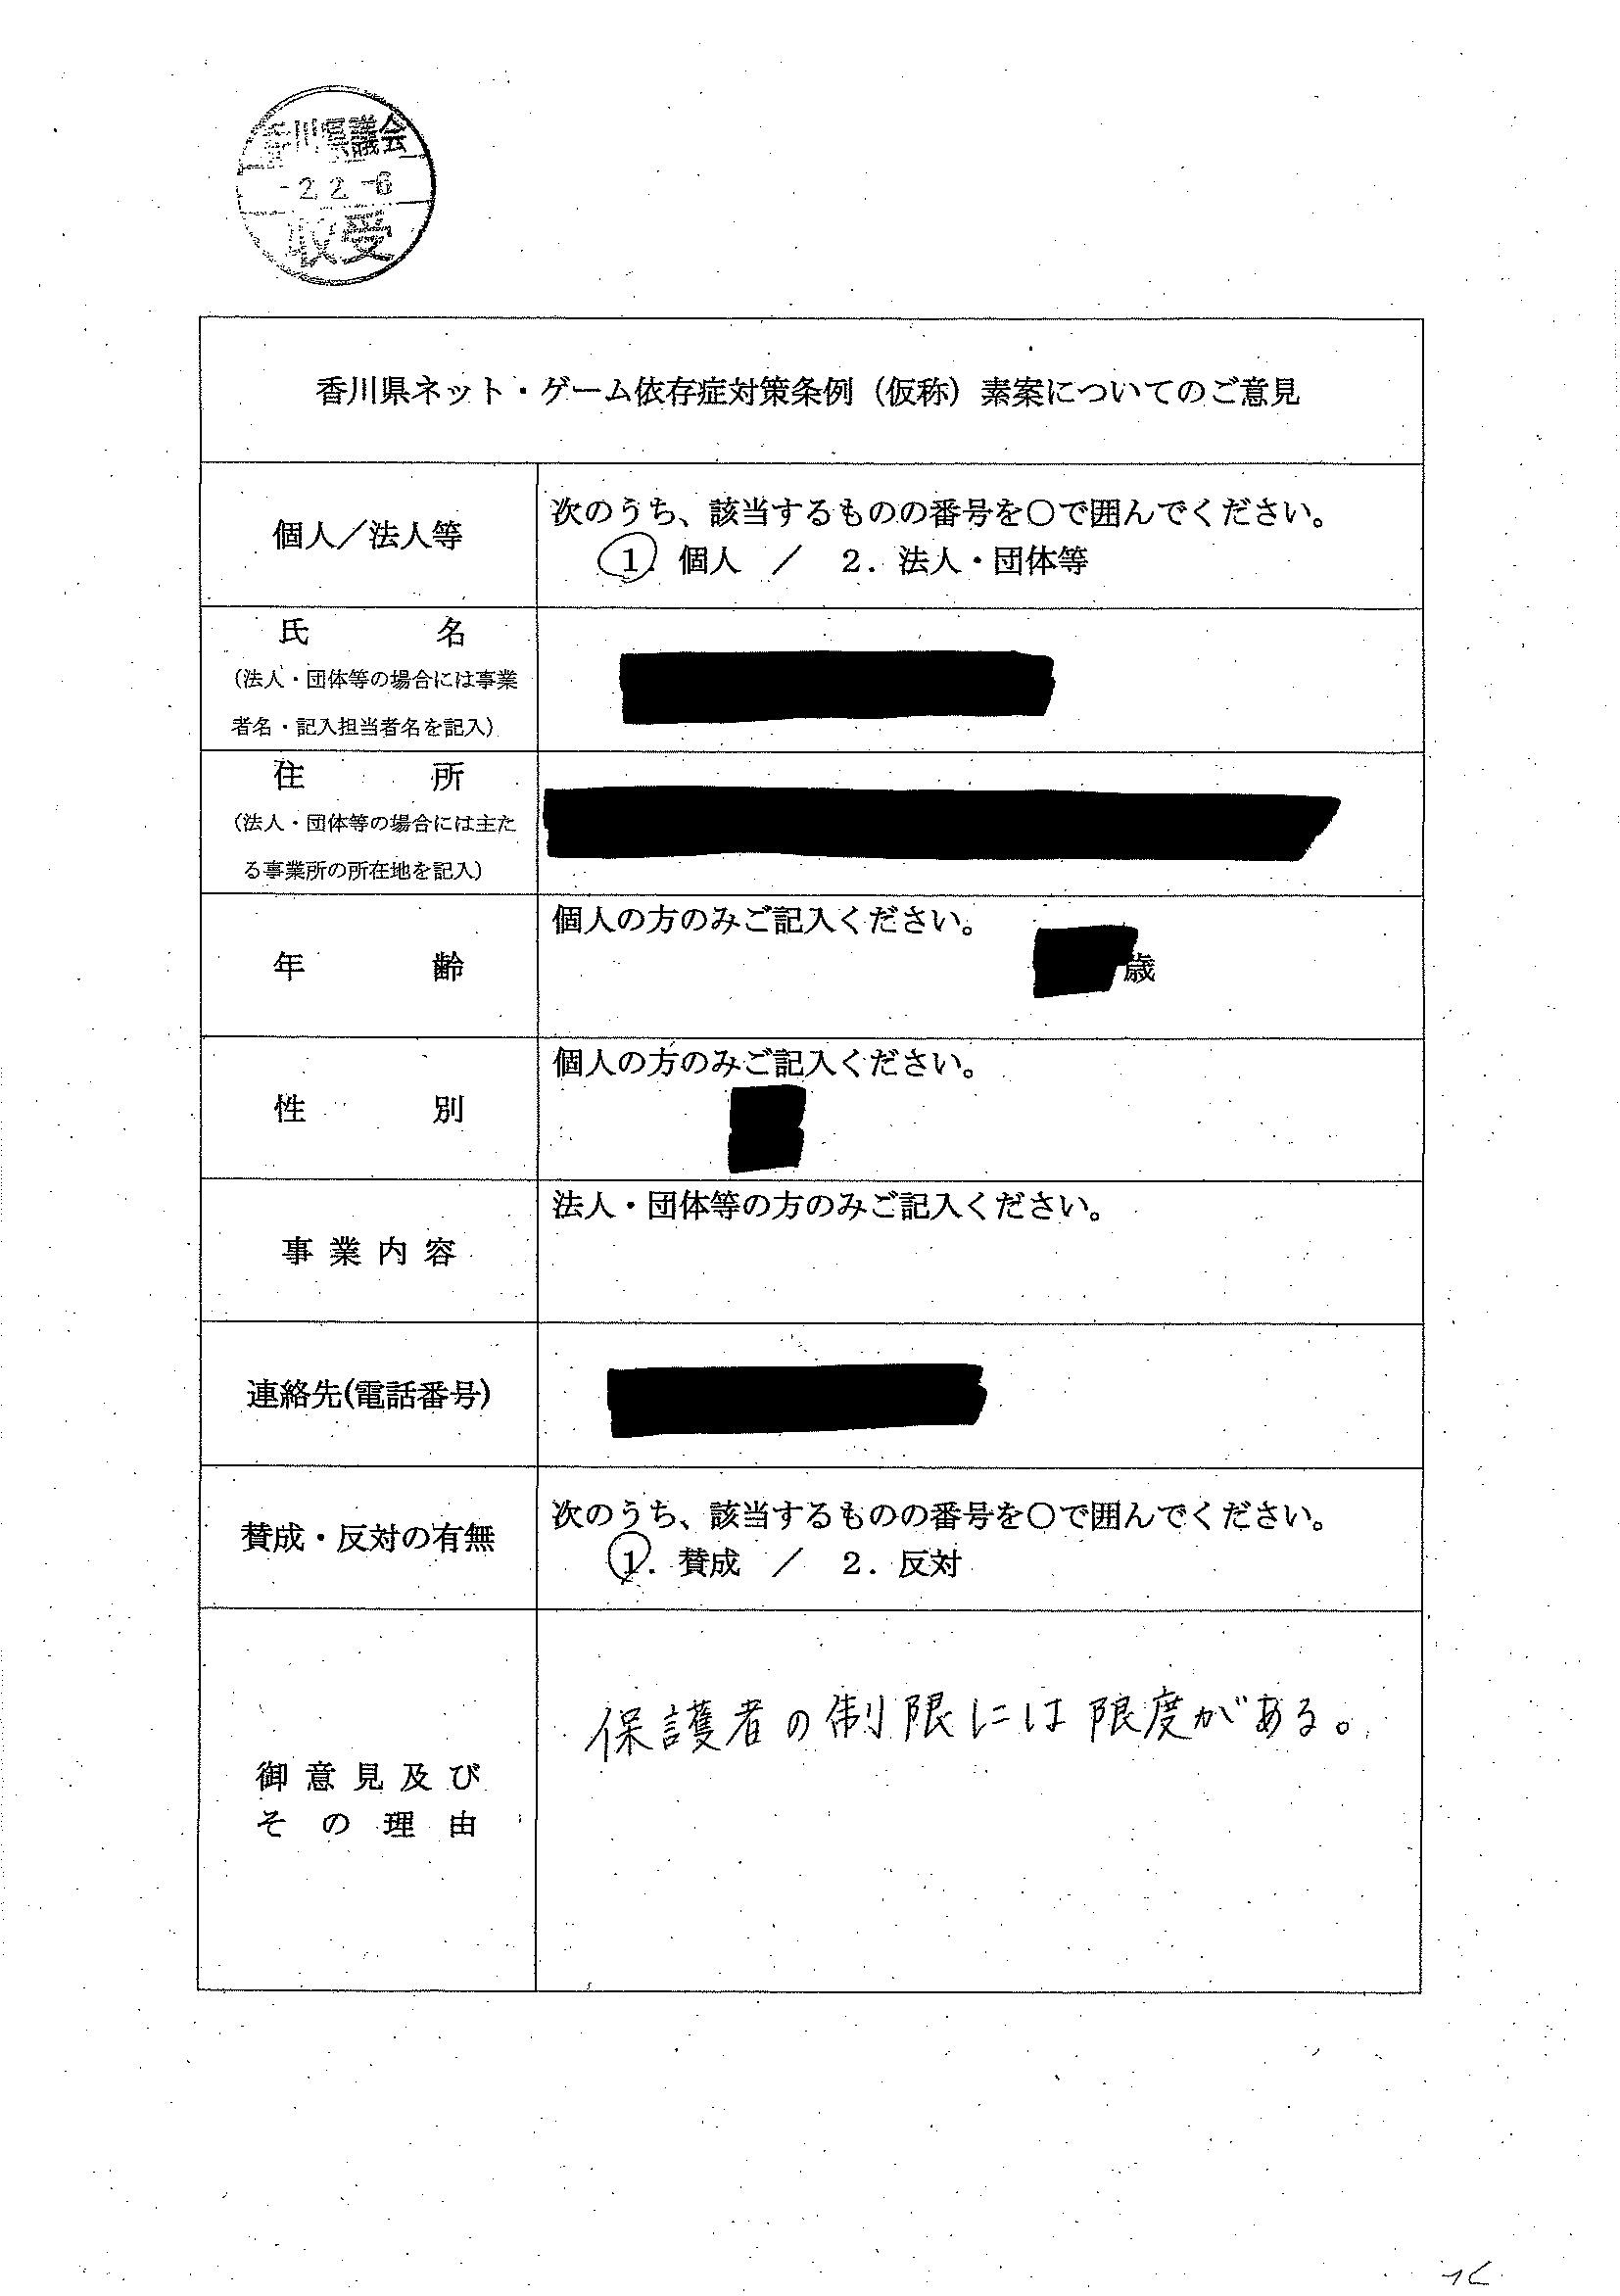 香川県議会
-2.2.-6
収受
香川県ネット・ゲーム依存症対策条例（仮称）素案についてのご意見
個人／法人等
次のうち、該当するものの番号を〇で囲んでください。
1. 個人 ／ 2. 法人・団体等
氏 名
（法人・団体等の場合には事業
者名・記入担当者名を記入）
住 所
（法人・団体等の場合には主た
る事業所の所在地を記入）
年 齢
個人の方のみご記入ください。
歳
性 別
個人の方のみご記入ください。
事 業 内 容
法人・団体等の方のみご記入ください。
連絡先(電話番号)
賛成・反対の有無
次のうち、該当するものの番号を〇で囲んでください。
1. 賛成 ／ 2. 反対
御 意 見 及 び
そ の 理 由
保護者の制限には限度がある。